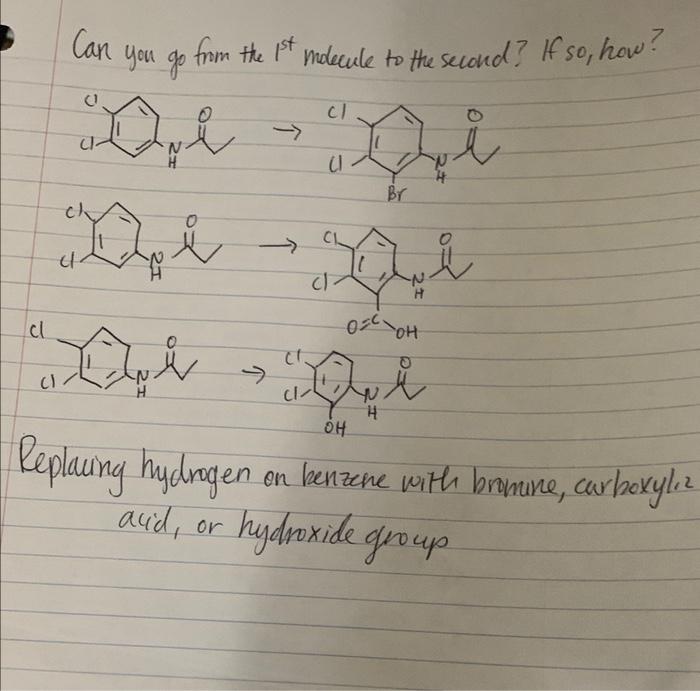 Can you go from the 1st molecule to the second? If so, how?
Cl Cl N H O → Cl Cl Br N H O
Cl Cl N H O → Cl Cl N H O
O=C OH
Cl Cl N H O → Cl Cl N H O
OH
Replacing hydrogen on benzene with bromine, carboxylic
acid, or hydroxide group